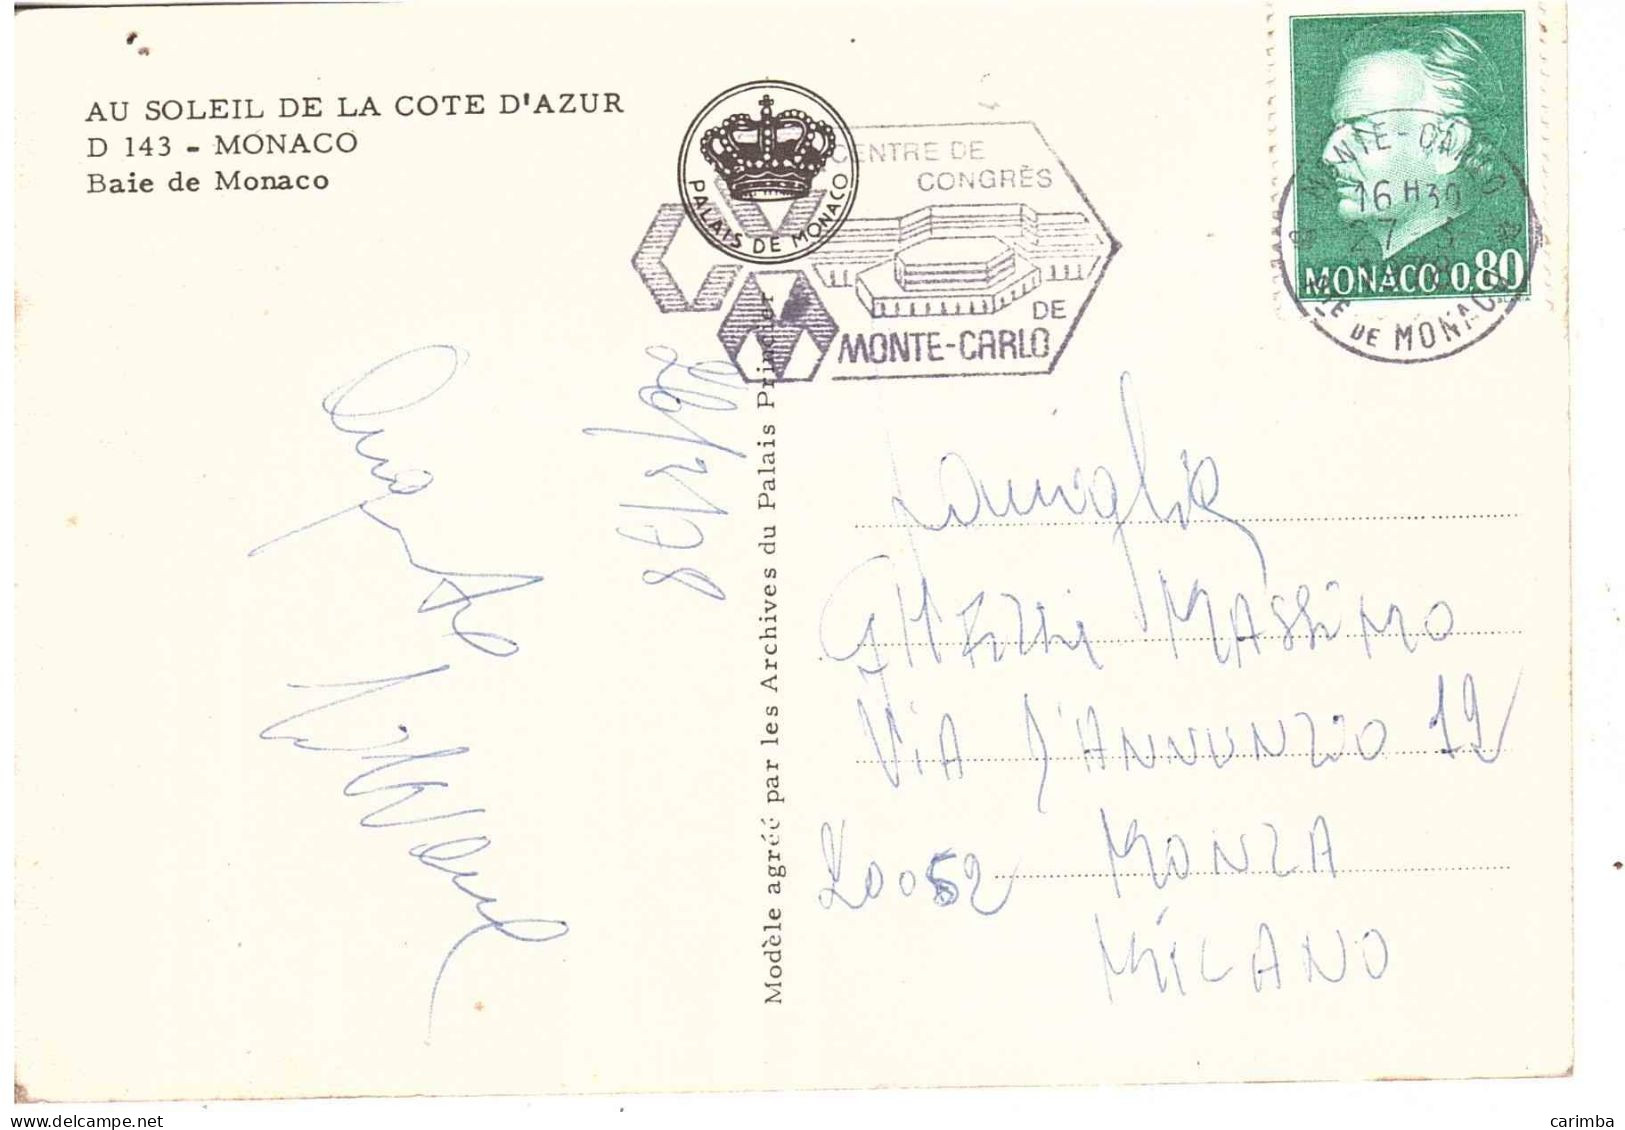 AU SOLEIL DE LA COTE D'AZUR
D 143 - MONACO
Baie de Monaco
PALAIS DE MONACO
CENTRE DE
CONGRÈS
DE
MONTE-CARLO
MONTE-CARLO
16 H 30
7 3
PTE DE MONACO
MONACO 0.80
Modèle agréé par les Archives du Palais Princier
Famiglia
GHEZZI MASSIMO
VIA D'ANNUNZIO 12
20052 MONZA
MILANO
carimba